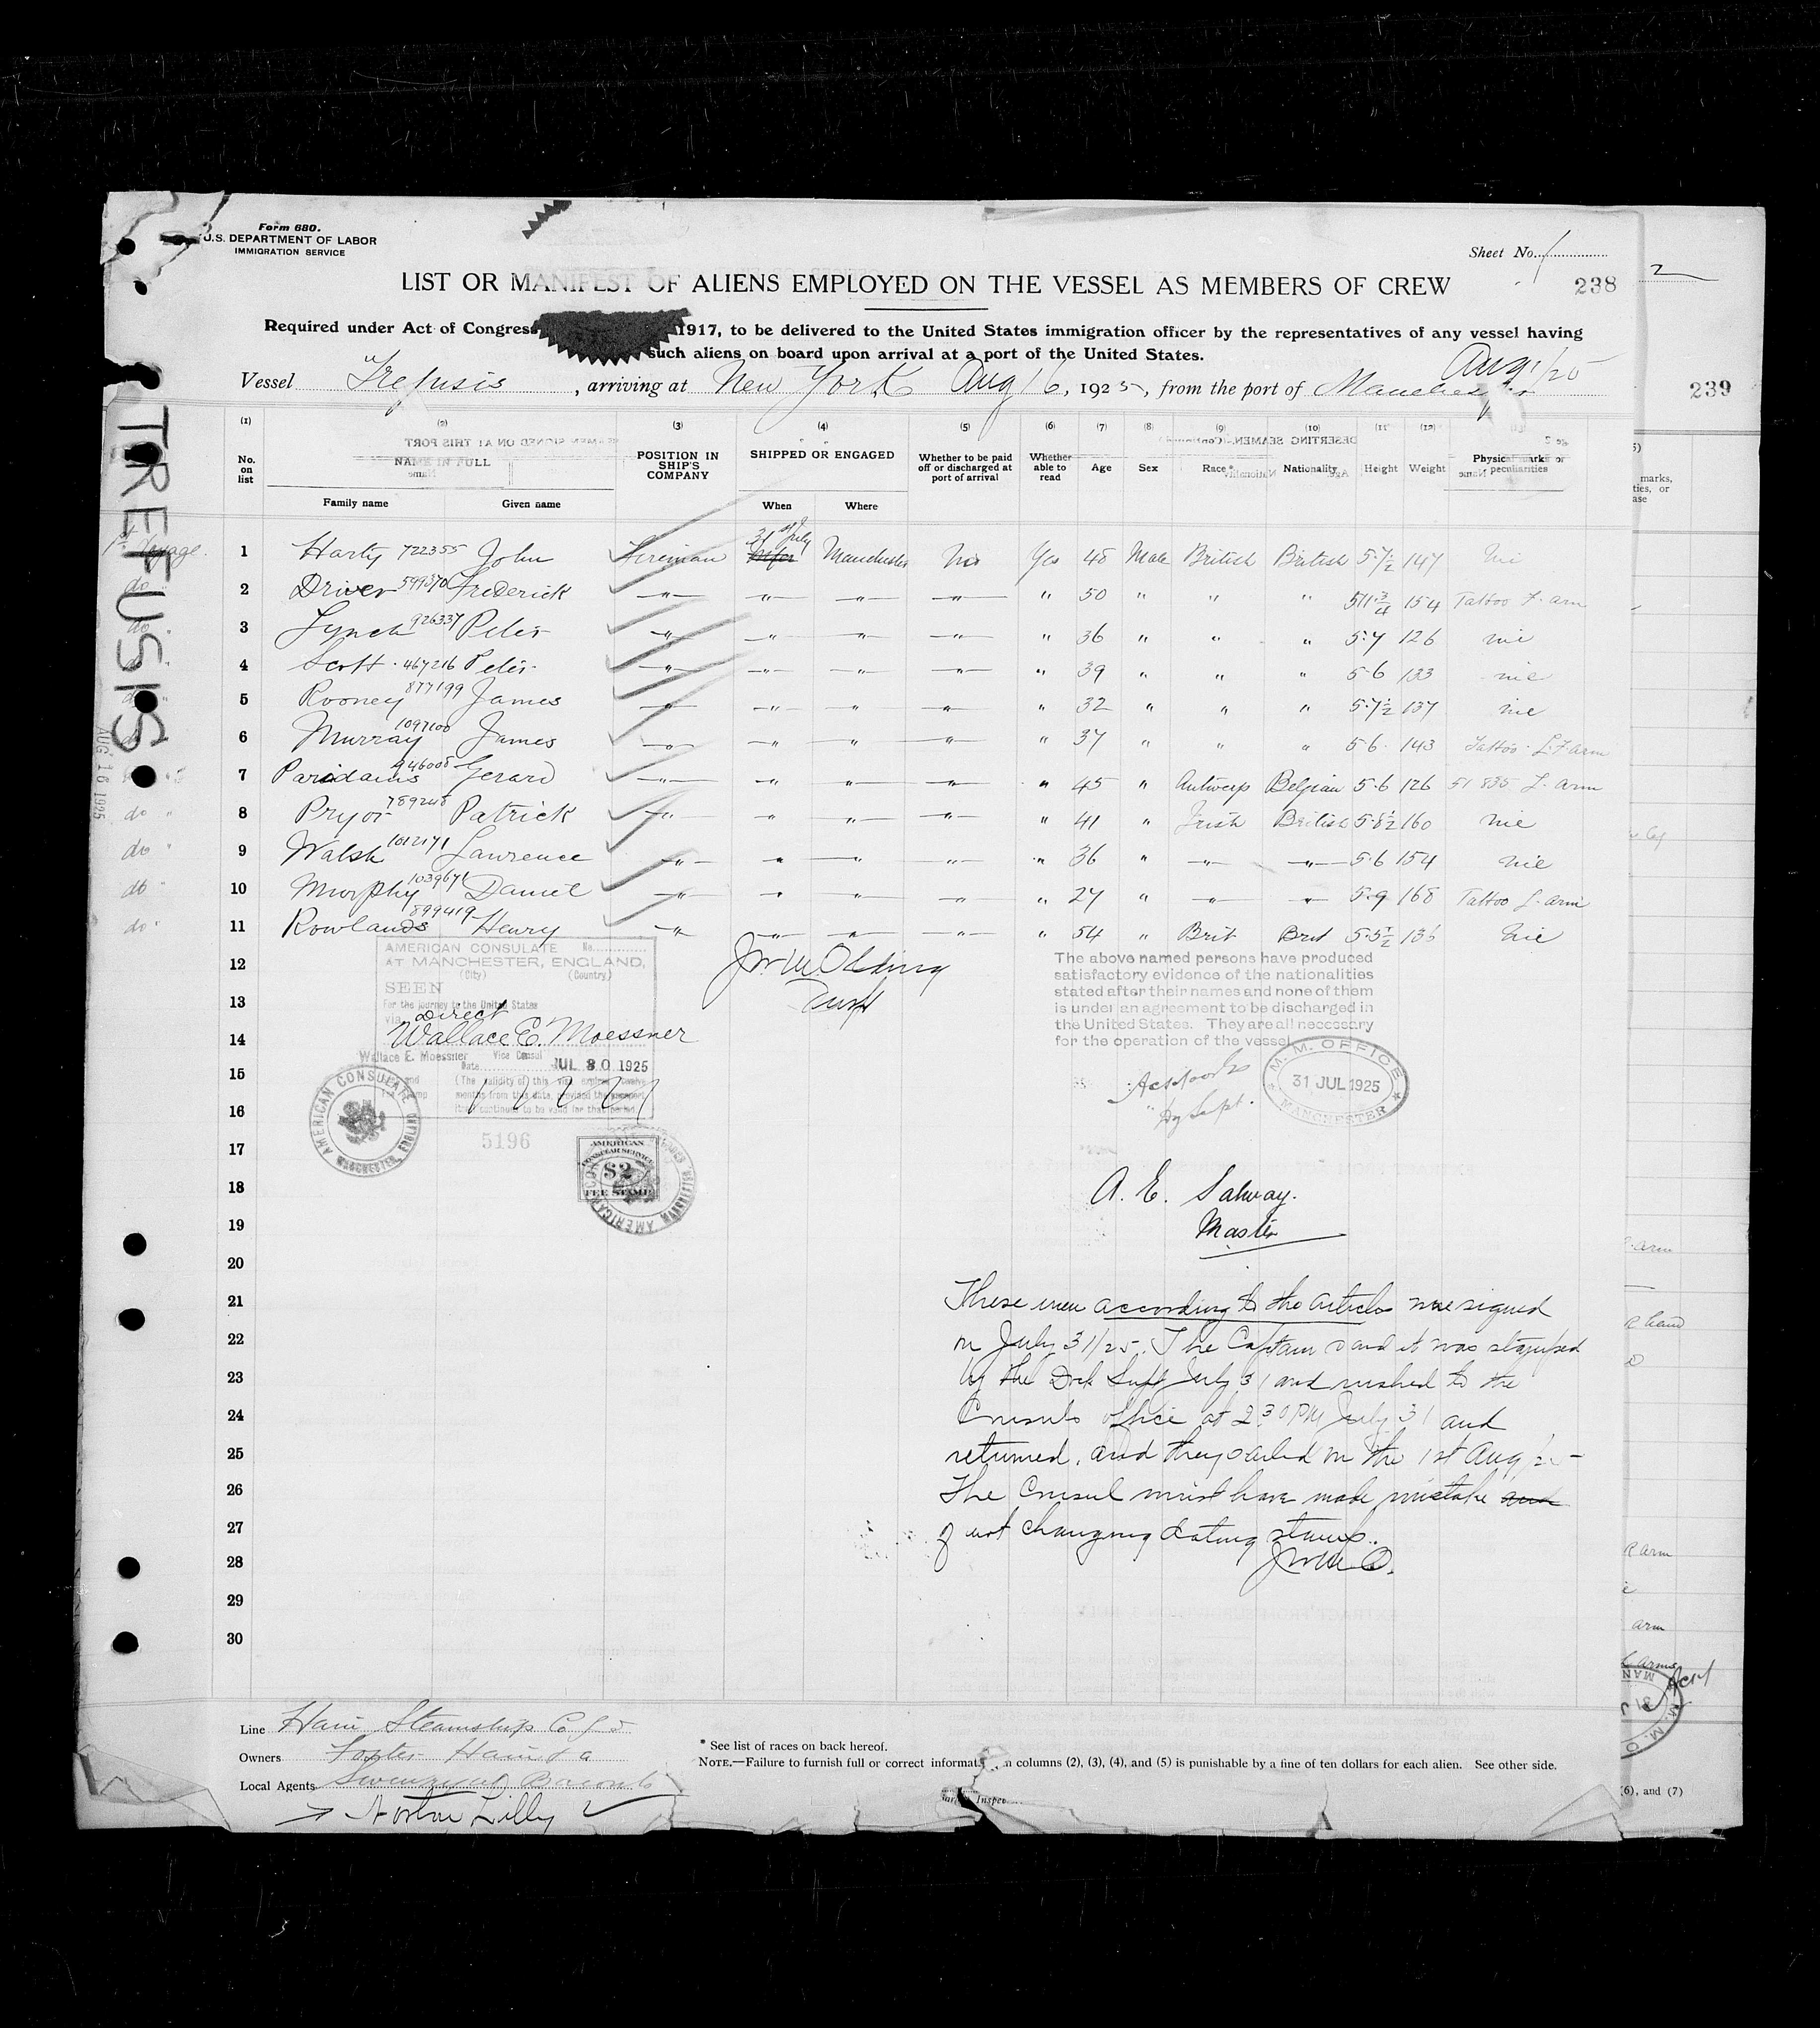 Form 680.
U.S. DEPARTMENT OF LABOR
IMMIGRATION SERVICE
Sheet No. 1
238
2
239
LIST OR MANIFEST OF ALIENS EMPLOYED ON THE VESSEL AS MEMBERS OF CREW
Required under Act of Congress 1917, to be delivered to the United States immigration officer by the representatives of any vessel having
such aliens on board upon arrival at a port of the United States.
Aug 1/25
Vessel "Trefusis , arriving at New York Aug 16, 1925, from the port of Manchester
TREFUSIS
AUG 16 1925
(1) (2) (3) (4) (5) (6) (7) (8) (9) (10) (11) (12)
No. on list
NAME IN FULL
Family name Given name
POSITION IN SHIP'S COMPANY
SHIPPED OR ENGAGED
When Where
Whether to be paid off or discharged at port of arrival
Whether able to read
Age Sex Race* Nationality Height Weight Physical marks or peculiarities
1st Voyage. 1 Harty 722355 John Fireman 31 of July Manchester No Yes 48 Male British British 5·7½ 147 nil
do " 2 Driver 599370 Frederick —"— —"— —"— —"— " 50 " " " 5 11·¾ 154 Tattoo F. arm
do " 3 Lynch 926337 Peter —"— —"— —"— —"— " 36 " " " 5·7 126 nil
4 Scott 467216 Peter —"— —"— —"— —"— " 39 " " " 5·6 133 nil
5 Rooney 877199 James —"— —"— —"— —"— " 32 " " " 5·7½ 137 nil
6 Murray 1097100 James —"— —"— —"— —"— " 37 " " " 5 6 143 Tattoo L. F arm
7 Paridaens 946008 Gerard —"— " —"— —"— " 45 " Antwerp Belgian 5·6 126 51 835 L. arm
do " 8 Pryor 789248 Patrick —"— " —"— —"— " 41 " Irish British 5·8½ 160 nil
do " 9 Walsh 1012171 Lawrence —"— " —"— —"— " 36 " —"— —"— 5·6 154 nil
do " 10 Murphy 1039671 Daniel —"— " " —"— " 27 " —"— —"— 5·9 168 Tattoo L. arm
do " 11 Rowlands 899419 Henry —"— —"— —"— —"— " 54 " Brit Brit 5·5½ 136 nil
12
13
14
15
16
17
18
19
20
21
22
23
24
25
26
27
28
29
30
AMERICAN CONSULATE No.
AT MANCHESTER, ENGLAND,
(City) (Country)
SEEN
For the journey to the United States
via direct
Wallace E. Moessner
Wallace E. Moessner Vice Consul
Date JUL 30 1925
(The validity of this visa expires twelve
months from this date, provided the passport
continues to be valid for that period.
AMERICAN CONSULATE
MANCHESTER, ENGLAND
5196
AMERICAN
CONSULAR SERVICE
$2
FEE STAMP
Jno McOlding
The above named persons have produced
satisfactory evidence of the nationalities
stated after their names and none of them
is under an agreement to be discharged in
the United States. They are all necessary
for the operation of the vessel
Dy Supt.
M. M. OFFICE
31 JUL 1925
MANCHESTER
A. E. Salway.
Master
These men according to the articles were signed
on July 31/25. The Captain said it was stamped
by the Dock Supt July 31 and rushed to the
Consuls office at 2.30 PM July 31 and
returned, and they sailed on the 1st Aug/25
The Consul must have made mistake and
of not changing dating stamp.
J McO.
Line Hain Steamship Co Ld
Owners Foster Hain & Co
Local Agents
Norton Lilly
* See list of races on back hereof.
NOTE.—Failure to furnish full or correct informat in columns (2), (3), (4), and (5) is punishable by a fine of ten dollars for each alien. See other side.
(6), and (7)